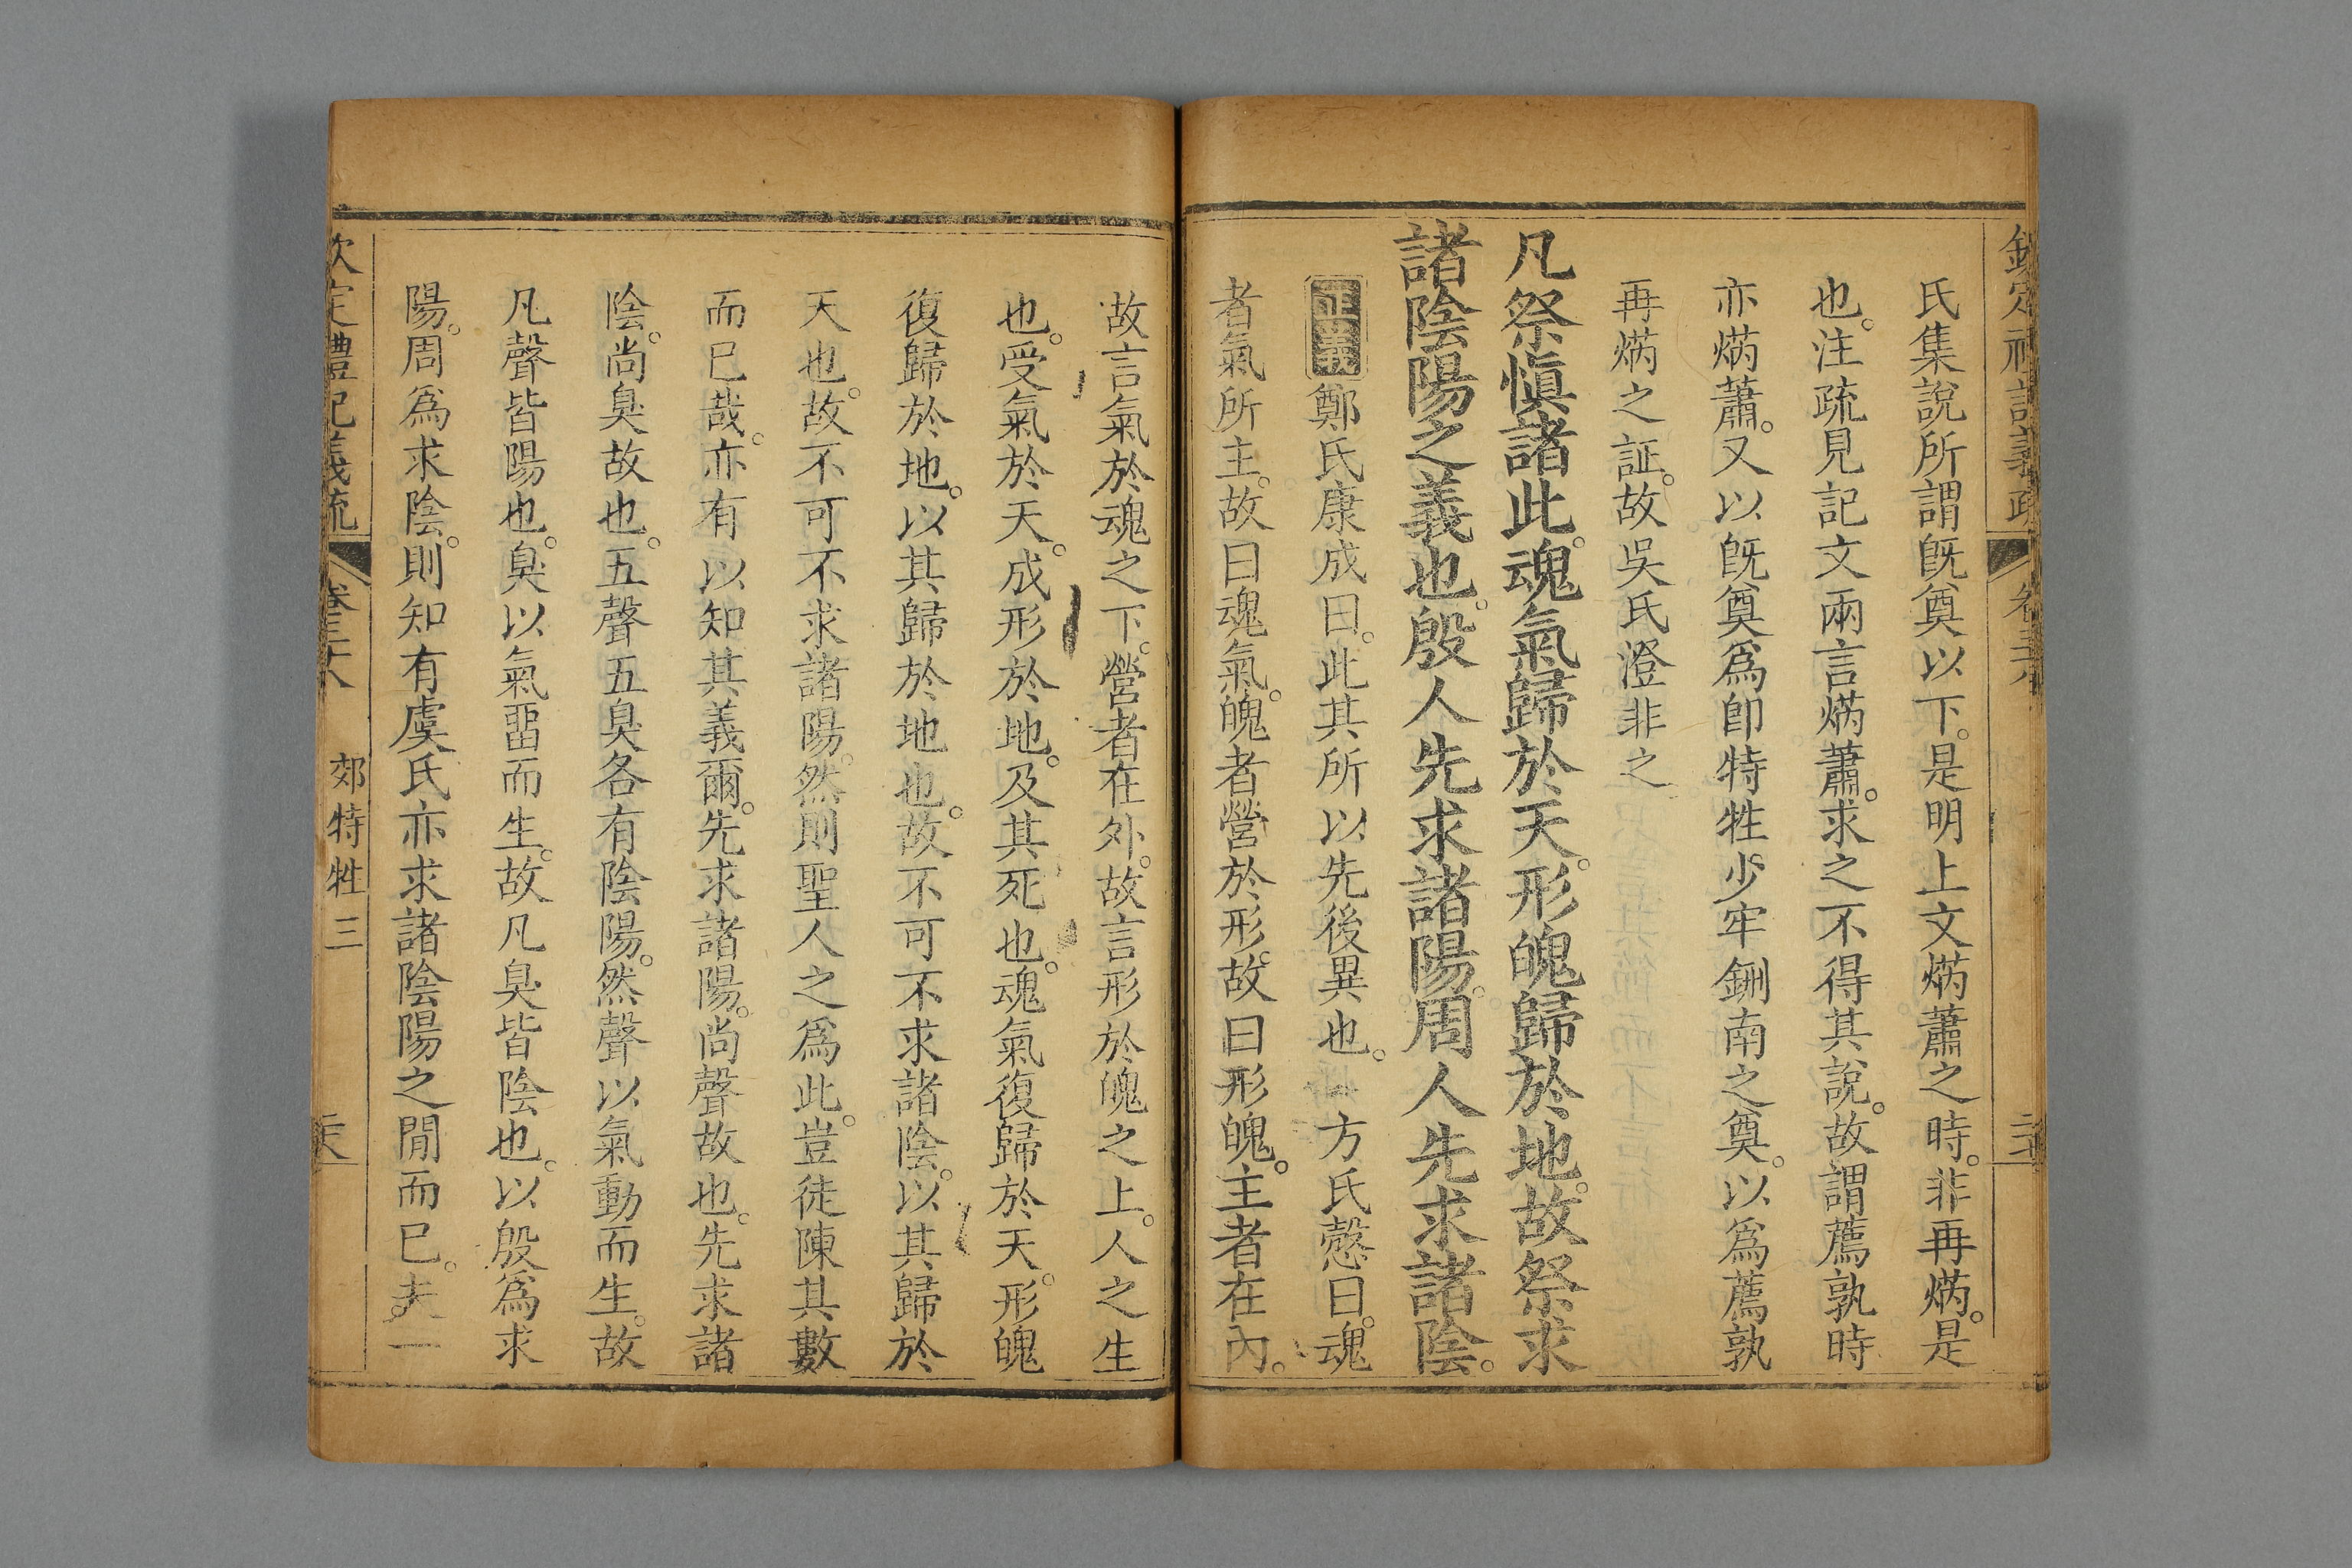 氏集說所謂旣奠以下。是明上文焫蕭之時。非再焫。是
也。注疏見記文兩言焫蕭。求之不得其說。故謂薦孰時
亦焫蕭。又以旣奠爲卽特牲少牢鉶南之奠。以爲薦孰
再焫之証。故吳氏澄非之
凡祭愼諸此。魂氣歸於天。形魄歸於地。故祭求
諸陰陽之義也。殷人先求諸陽。周人先求諸陰。
正義鄭氏康成曰。此其所以先後異也。方氏慤曰。魂
者氣所主。故曰魂氣。魄者營於形。故曰形魄。主者在內。
故言氣於魂之下。營者在外。故言形於魄之上。人之生
也。受氣於天。成形於地。及其死也。魂氣復歸於天。形魄
復歸於地。以其歸於地也。故不可不求諸陰。以其歸於
天也。故不可不求諸陽。然則聖人之爲此。豈徒陳其數
而已哉。亦有以知其義爾。先求諸陽。尚聲故也。先求諸
陰。尚臭故也。五聲五臭各有陰陽。然聲以氣動而生。故
凡聲皆陽也。臭以氣畱而生。故凡臭皆陰也。以殷爲求
陽。周爲求陰。則知有虞氏亦求諸陰陽之閒而已。夫一
欽定禮記義疏 卷三十六 郊特牲 三